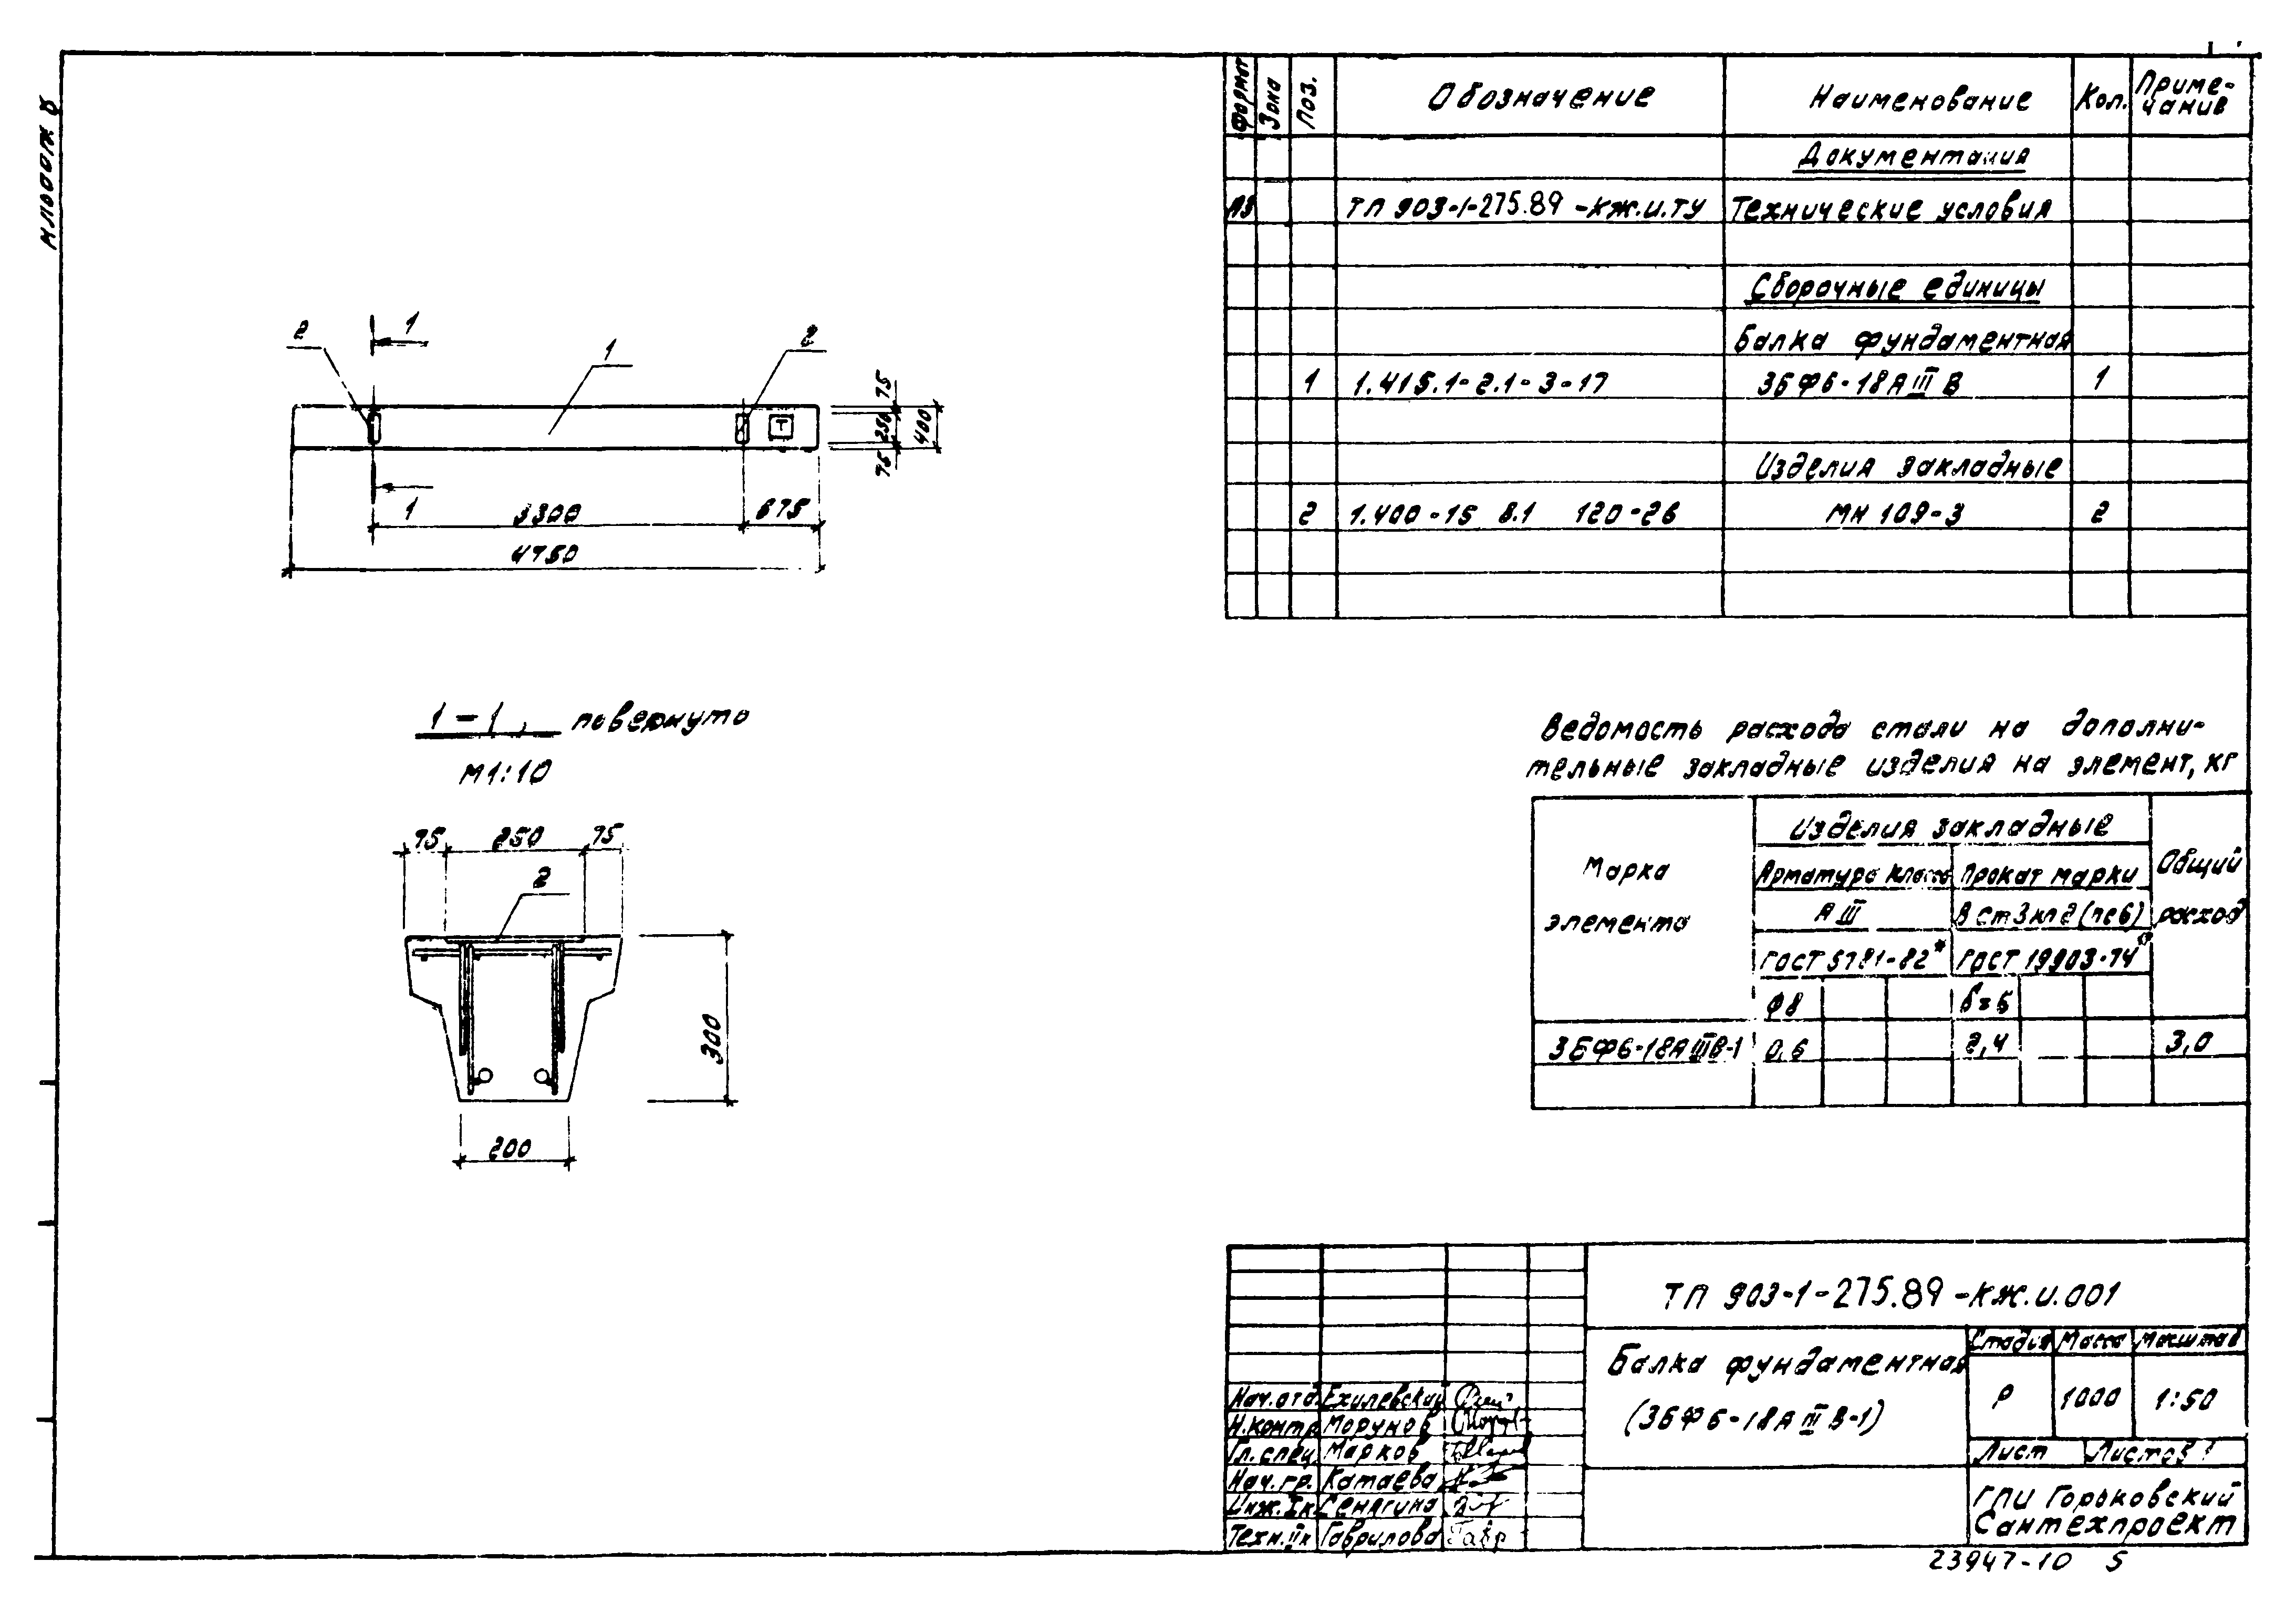 Альбом 8
Формат Зона Поз. Обозначение Наименование Кол. Приме-
чание
Документация
А3 ТП 903-1-275.89-КЖ.И.ТУ Технические условия
Сборочные единицы
Балка фундаментная
1 1.415.1-2.1-3-17 3БФ6-18АIIIВ 1
Изделия закладные
2 1.400-15 В.1 120-26 МН 109-3 2
2 1 1 2
75
250 400
75
1 3300 675
4750
1-1 повернуто
М1:10
75 250 75
2
300
200
Ведомость расхода стали на дополни-
тельные закладные изделия на элемент, кг
Марка
элемента
Изделия закладные
Общий
расход
Арматура класса Прокат марки
АIII ВСт3кп2(пс6)
ГОСТ 5781-82* ГОСТ 19903-74*
Ф8 δ=6
3БФ6-18АIIIВ-1 0,6 2,4 3,0
ТП 903-1-275.89-КЖ.И.001
Балка фундаментная
(3БФ6-18АIIIВ-1)
Стадия Масса Масштаб
Р 1000 1:50
Лист Листов 1
ГПИ Горьковский
Сантехпроект
Нач.отд. Ехилевский
Н.контр. Морунов
Гл.спец. Марков
Нач.гр. Катаева
Инж.Iк. Сенягина
Техн.IIк Гаврилова
23947-10 5
Т